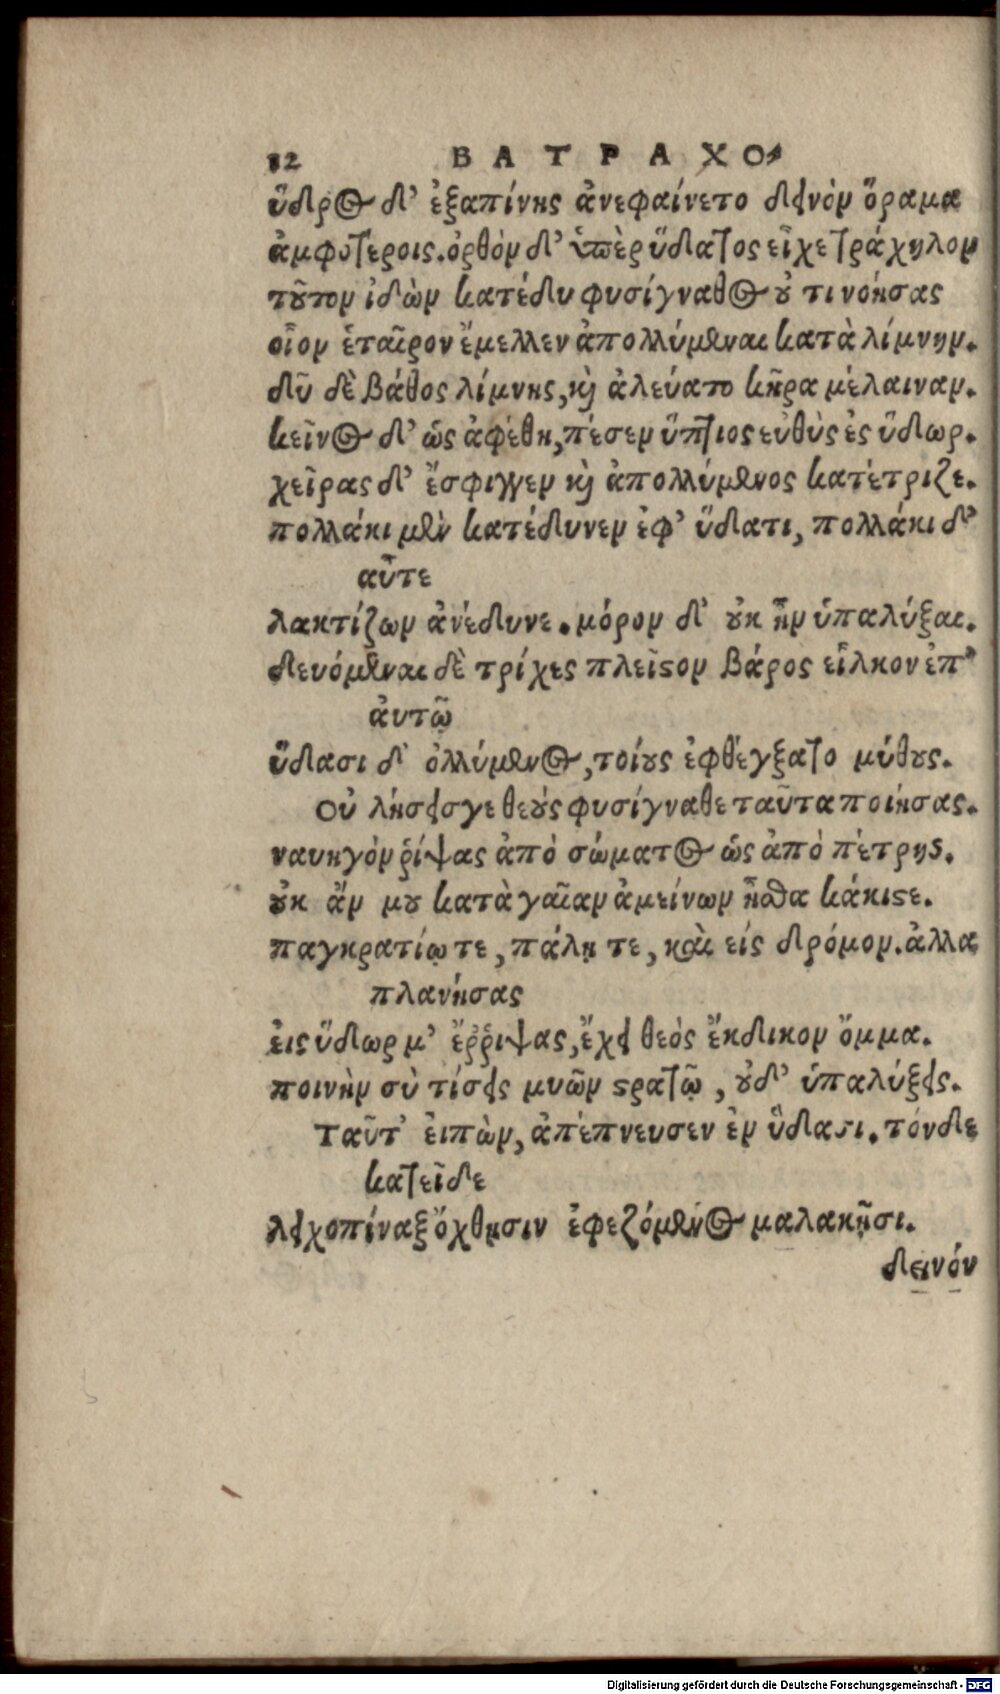 82 ΒΑΤΡΑΧΟ
ὕδρος δ' ἐξαπίνης ἀνεφαίνετο δεινὸν ὅραμα
ἀμφοτέροις. ὀρθὸν δ' ὑπὲρ ὕδατος εἶχε τράχηλον
τοῦτον ἰδὼν κατέδυ φυσίγναθος οὔ τι νοήσας
οἷον ἑταῖρον ἔμελλεν ἀπολλύμεναι κατὰ λίμνην.
δῦ δὲ βάθος λίμνης, καὶ ἀλεύατο κῆρα μέλαιναν.
κεῖνος δ' ὡς ἀφέθη, πέσεν ὕπτιος εὐθὺς ἐς ὕδωρ.
χεῖρας δ' ἔσφιγγεν καὶ ἀπολλύμενος κατέτριζε.
πολλάκι μὲν κατέδυνεν ἐφ' ὕδατι, πολλάκι δ'
αὖτε
λακτίζων ἀνέδυνε. μόρον δ' οὐκ ἦν ὑπαλύξαι.
δευόμεναι δὲ τρίχες πλεῖστον βάρος εἷλκον ἐπ'
ἀυτῷ
ὕδασι δ' ὀλλύμενος, τοίους ἐφθέγξατο μύθους.
Οὐ λήσεις γε θεοὺς φυσίγναθε ταῦτα ποιήσας.
ναυηγὸν ῥίψας ἀπὸ σώματος ὡς ἀπὸ πέτρης.
οὐκ ἄν μου κατὰ γαῖαν ἀμείνων ἦσθα κάκιστε.
παγκρατίῳ τε, πάλῃ τε, καὶ εἰς δρόμον. ἀλλα
πλανήσας
εἰς ὕδωρ μ' ἔῤῥιψας, ἔχει θεὸς ἔκδικον ὄμμα.
ποινὴν σὺ τίσεις μυῶν στρατῷ, οὐδ' ὑπαλύξεις.
Ταῦτ' ἐιπὼν, ἀπέπνευσεν ἐν ὕδασι. τόνδε
κατεῖδε
λειχοπίναξ ὄχθῃσιν ἐφεζόμενος μαλακῇσι.
δεινόν
Digitalisierung gefördert durch die Deutsche Forschungsgemeinschaft - DFG